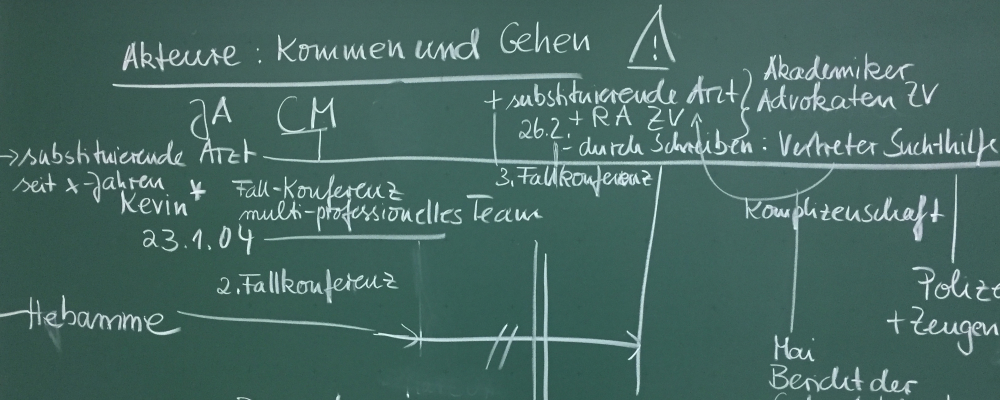 Akteure : Kommen und Gehen
!
JA CM
+ substituierende Arzt
26.2. + RA ZV
- durch Schreiben : Vertreter Suchthilfe
Akademiker
Advokaten ZV
→ substituierende Arzt
seit x-Jahren
Kevin *
23.1.04
Fall-Konferenz
multi-professionelles Team
3. Fallkonferenz
Komplizenschaft
2. Fallkonferenz
Hebamme
Polize
+ Zeugen
Mai
Bericht der